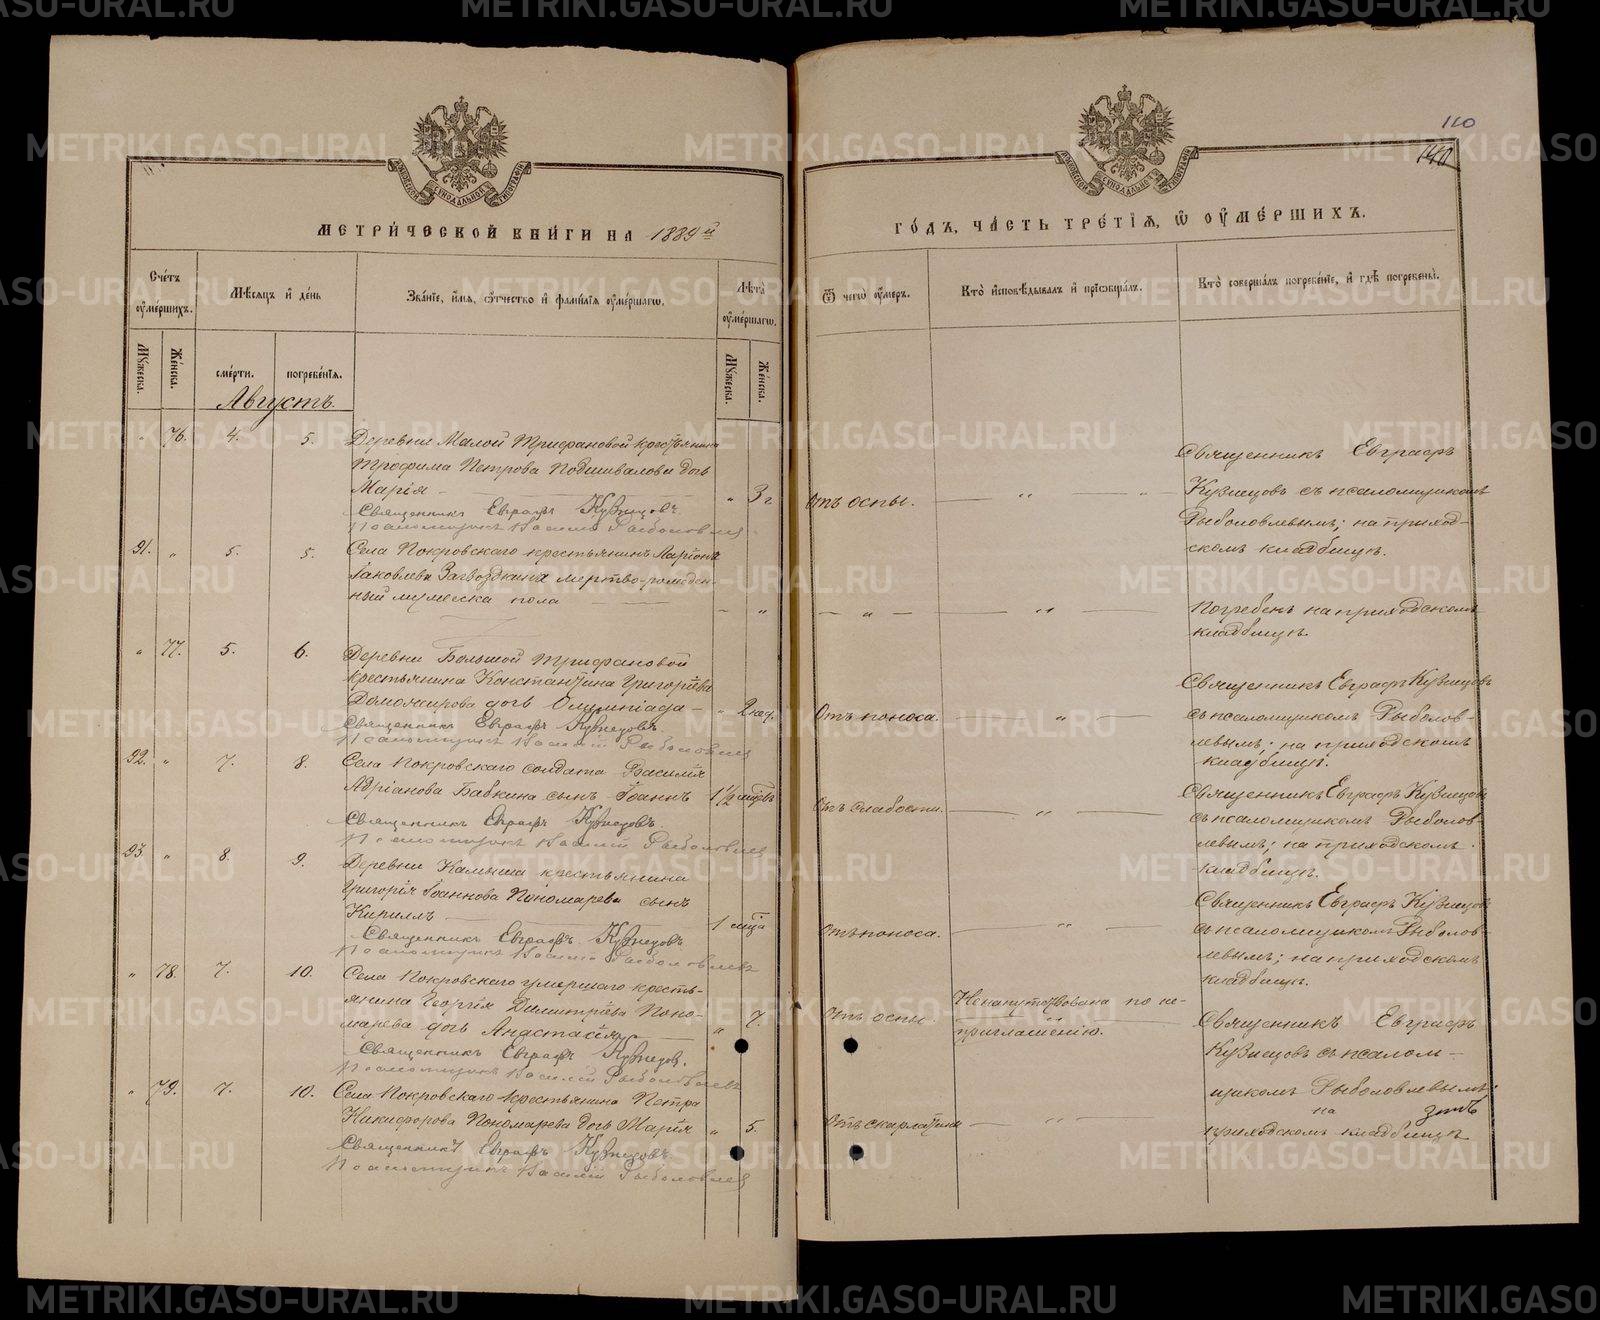 110
140
МЕТРИ́ЧЕСКОЙ КНИ́ГИ НА 1889й
ГО́ДЪ, ЧА́СТЬ ТРЕ́ТІѦ, Ѽ ОУ҆МЕ́РШИХЪ.
Сче́тъ оу҆ме́ршихъ.
Му́жеска.
Же́нска.
Мѣ́сѧцъ и҆ де́нь
сме́рти.
погребе́нїѧ.
Зва́нїе, и҆́мѧ, ѻ҆́тчество и҆ фами́лїѧ оу҆ме́ршагѡ.
Лѣ́та оу҆ме́ршагѡ.
Му́жеска.
Же́нска.
Ѿ чегѡ̀ оу҆́меръ.
Кто̀ и҆сповѣ́дывалъ и҆ прїѡбща́лъ.
Кто̀ соверша́лъ погребе́нїе, и҆ гдѣ̀ погребены̀.
Августъ.
" 76. 4. 5. Деревни Малой Трифановой крестьянина
Трофима Петрова Подшивалова дочь
Марія — " 3 г Отъ оспы. — " — "
Священникъ Евграфъ Кузнецовъ.
Псаломщикъ Василій Рыболовлевъ
Священникъ Евграфъ
Кузнецовъ съ псаломщикомъ
Рыболовлевымъ; на приход-
скомъ кладбищѣ.
91. " 5. 5. Села Покровскаго крестьянина Ларіона
Іаковлева Загвоздкина мертво-рожден-
ный мужеска пола — — " — " — — " —
Погребенъ на приходскомъ
кладбищѣ.
" 77. 5. 6. Деревни Большой Трифановой
крестьянина Константина Григоріева
Доможирова дочь Олимпіада — " 2 нед. Отъ поноса. — " —
Священникъ Евграфъ Кузнецовъ
Псаломщикъ Василій Рыболовлевъ
Священникъ Евграфъ Кузнецовъ
съ псаломщикомъ Рыболов-
левымъ; на приходскомъ
кладбищѣ.
92. " 7. 8. Села Покровскаго солдата Василія
Адріанова Бабкина сынъ Іоаннъ 1½ мѣсѣ Отъ слабости. — " —
Священникъ Евграфъ Кузнецовъ.
Псаломщикъ Василій Рыболовлевъ
Священникъ Евграфъ Кузнецовъ
съ псаломщикомъ Рыболов-
левымъ; на приходскомъ
кладбищѣ.
93. " 8. 9. Деревни Камыша крестьянина
Григорія Іоаннова Пономарева сынъ
Кириллъ — 1 мца Отъ поноса. — " —
Священникъ Евграфъ Кузнецовъ
Псаломщикъ Василій Рыболовлевъ
Священникъ Евграфъ Кузнецовъ
съ псаломщикомъ Рыболов-
левымъ; на приходскомъ
кладбищѣ.
" 78. 7. 10. Села Покровскаго умершаго кресть-
янина Георгія Димитріева Поно-
марева дочь Анастасія — " 7. Отъ оспы. Ненапутствована по не-
приглашенію.
Священникъ Евграфъ Кузнецов.
Псаломщикъ Василій Рыболовлевъ
Священникъ Евграфъ
Кузнецовъ съ псалом-
щикомъ Рыболовлевымъ;
на
приходскомъ кладбищѣ
" 79. 7. 10. Села Покровскаго крестьянина Петра
Никифорова Пономарева дочь Марія " 5. Отъ скарлатины — " —
Священникъ Евграфъ Кузнецовъ
Псаломщикъ Василій Рыболовлевъ
METRIKI.GASO-URAL.RU